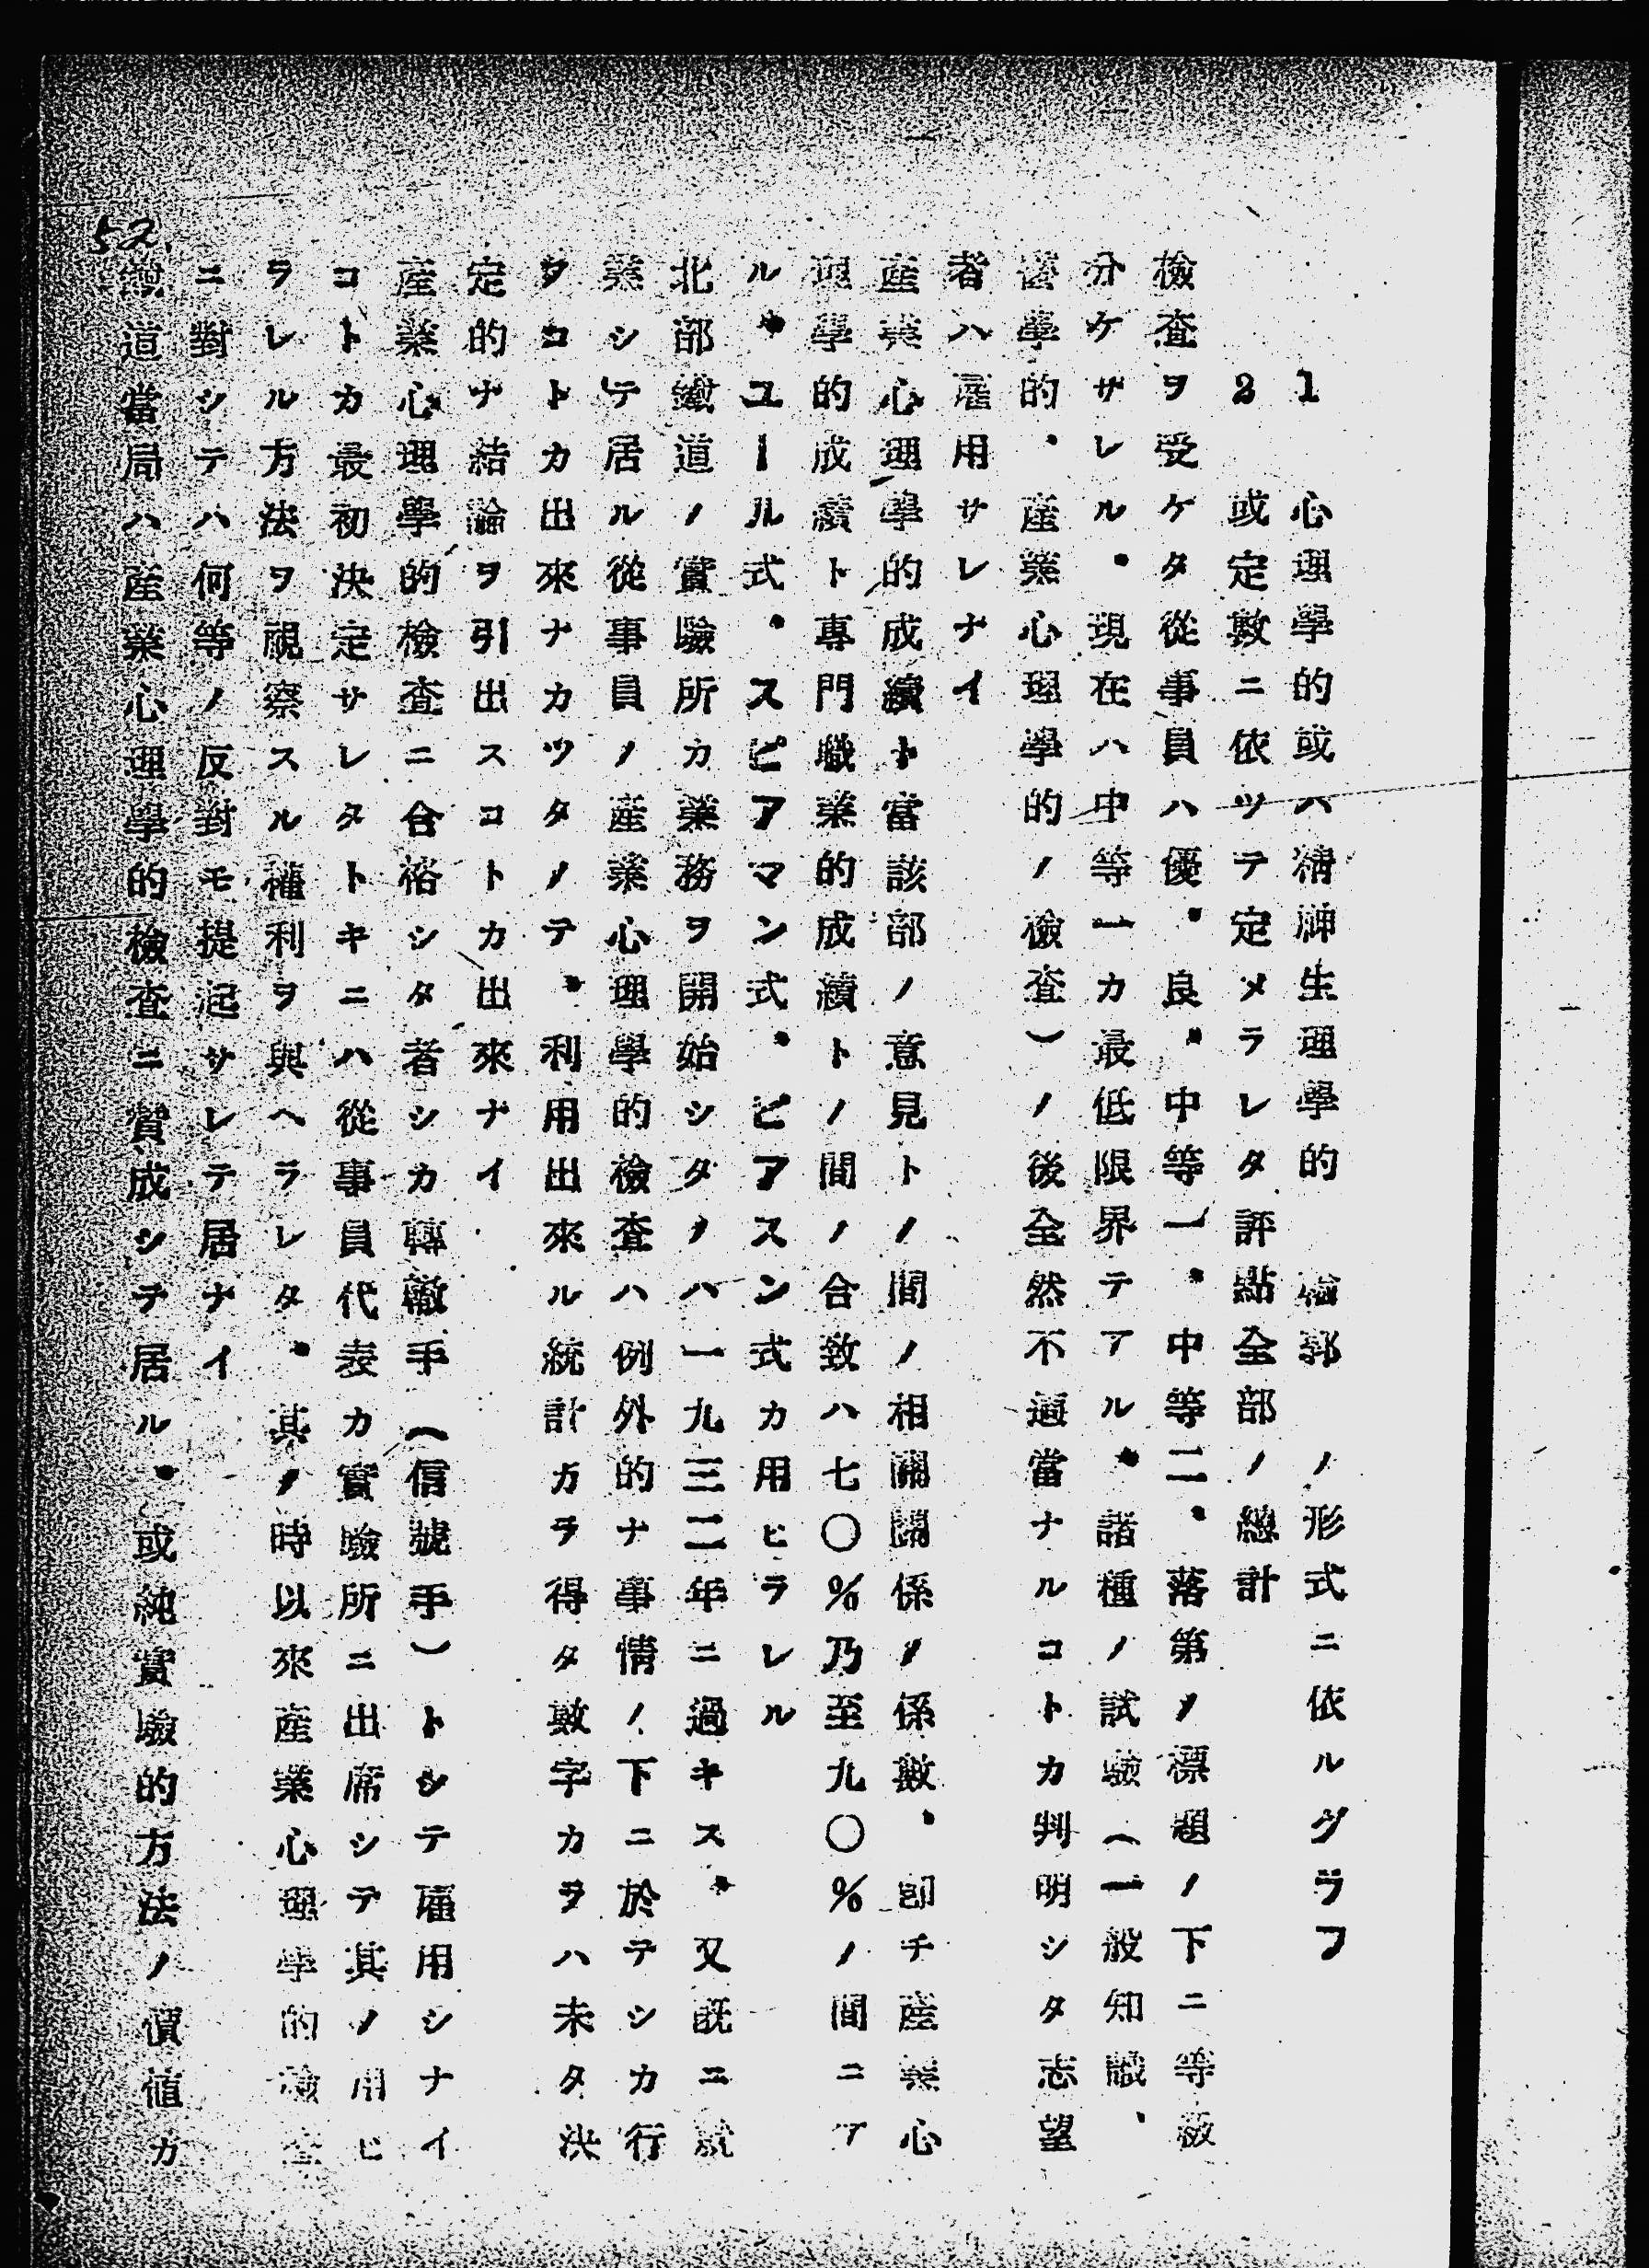 1 心理學的或ハ精神生理學的 輪郭ノ形式ニ依ルグラフ
2 或定數ニ依ツテ定メラレタ評點全部ノ總計
檢査ヲ受ケタ從事員ハ優、良、中等一、中等二、落第ノ標題ノ下ニ等級
分ケザレル、現在ハ中等一カ最低限界テアル、諸種ノ試驗(一般知識、
醫學的、產業心理學的ノ檢査)ノ後全然不適當ナルコトカ判明シタ志望
者ハ雇用サレナイ
產業心理學的成績ト當該部ノ意見トノ間ノ相關關係ノ係數、卽チ產業心
理學的成績ト專門職業的成績トノ間ノ合致ハ七〇%乃至九〇%ノ間ニア
ル、ユール式、スピアマン式、ピアスン式カ用ヒラレル
北部鐵道ノ實驗所カ業務ヲ開始シタノハ一九三二年ニ過キス、又既ニ就
業シテ居ル從事員ノ產業心理學的檢査ハ例外的ナ事情ノ下ニ於テシカ行
フコトカ出來ナカツタノテ、利用出來ル統計カラ得タ數字カラハ未タ決
定的ナ結論ヲ引出スコトカ出來ナイ
產業心理學的檢査ニ合格シタ者シカ轉轍手(信號手)トシテ雇用シナイ
コトカ最初決定サレタトキニハ從事員代表カ實驗所ニ出席シテ其ノ用ヒ
ラレル方法ヲ視察スル權利ヲ與ヘラレタ、其ノ時以來產業心理學的檢査
ニ對シテハ何等ノ反對モ提起サレテ居ナイ
鐵道當局ハ產業心理學的檢査ニ贊成シテ居ル、或純實驗的方法ノ價値カ
52.